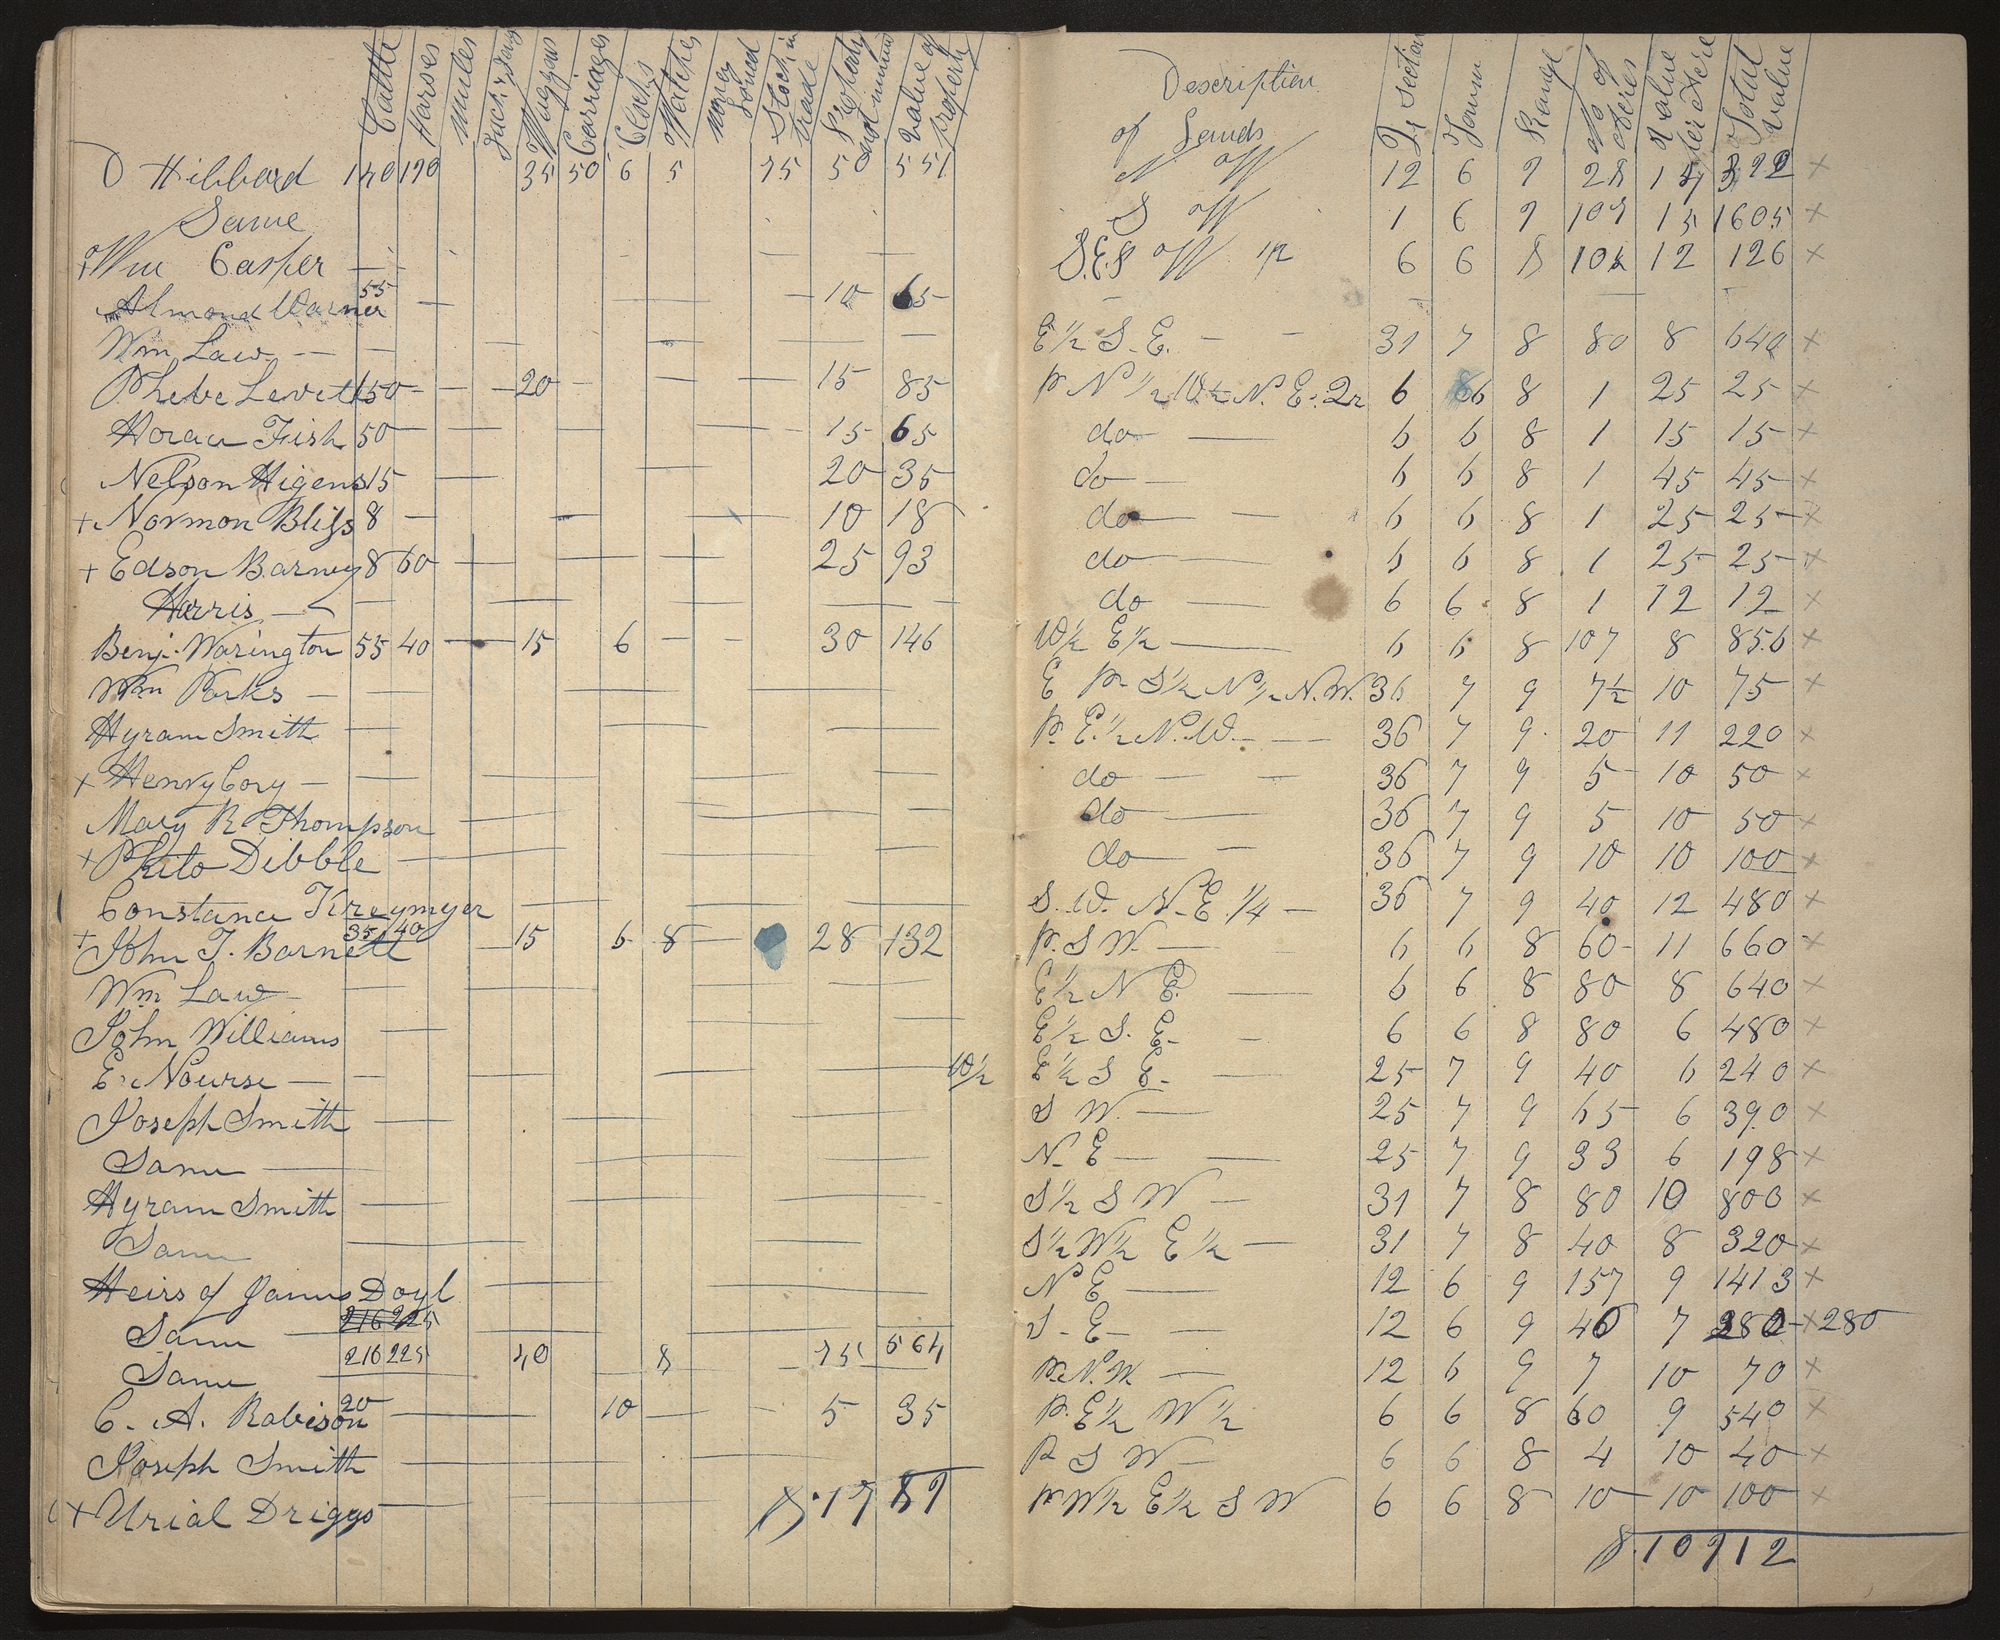 Cattle Horses Mules Jack & Jenny Waggons Carriages Clocks Watches Money Loned Stock in trade Property not enum Value of property Description of Lands Qr Section Town Range No of Acres Value per Acre Total Value
D Hibbard 140 190 35 50 6 5 75 50 551 N W 12 6 9 28 14 392 ×
Same S W 1 6 9 107 15 1605 ×
+ Wm Casper — S.E.P W 1/2 6 6 8 12 126 ×
Almond Warner 55 — 10 65
Wm Law — E 1/2 S.E. — 31 7 8 80 8 640 ×
Phebe Levett 50 — 20 — 15 85 p N 1/2 W 1/2 N.E. Qr 6 6 8 1 25 25 ×
Horace Fish 50 — 15 65 do — 6 6 8 1 15 15 ×
Nelson Higens 15 — 20 35 do — 6 6 8 1 45 45 ×
+ Normon Bliss 8 — 10 18 do — 6 6 8 1 25 25 ×
+ Edson Barney 8 60 — 25 93 do — 6 6 8 1 25 25 ×
Harris — do — 6 6 8 1 12 12 ×
Benj. Warington 55 40 — 15 6 — 30 146 W 1/2 E 1/2 — 6 6 8 107 8 856 ×
Wm Parks — E p S 1/2 N 1/2 N.W. 36 7 9 7 1/2 10 75 ×
Hyram Smith — p. E. 1/2 N.W. — 36 7 9 20 11 220 ×
× Henry Cory — do — 36 7 9 5 10 50 ×
Mary R Thompson — do — 36 7 9 5 10 50 ×
+ Philo Dibble — do — 36 7 9 10 10 100 ×
Constance Kreymyer — S.W. N.E. 1/4 — 36 7 9 40 12 480 ×
+ John T. Barnett 35 40 — 15 6 8 — 28 132 p. S W. — 6 6 8 60 11 660 ×
Wm Law — E 1/2 N E. — 6 6 8 80 8 640 ×
John Williams — E 1/2 S. E. — 6 6 8 80 6 480 ×
E. Nourse — W 1/2 E 1/2 S E. — 25 7 9 40 6 240 ×
Joseph Smith — S W. — 25 7 9 65 6 390 ×
Same — N. E — 25 7 9 33 6 198 ×
Hyram Smith — S 1/2 S W — 31 7 8 80 10 800 ×
Same — S 1/2 W 1/2 E 1/2 — 31 7 8 40 8 320 ×
Heirs of James Doyl — N E — 12 6 9 157 9 1413 ×
Same — 216 225 S. E — 12 6 9 40 7 280 × 280
Same 216 225 40 8 — 75 564 p. N. W. — 12 6 9 7 10 70 ×
C. A. Robison 20 — 10 — 5 35 p. E 1/2 W 1/2 6 6 8 60 9 540 ×
Joseph Smith — P S W — 6 6 8 4 10 40 ×
+ Urial Driggs — $.1789 p W 1/2 E 1/2 S W 6 6 8 10 10 100 ×
$.10912